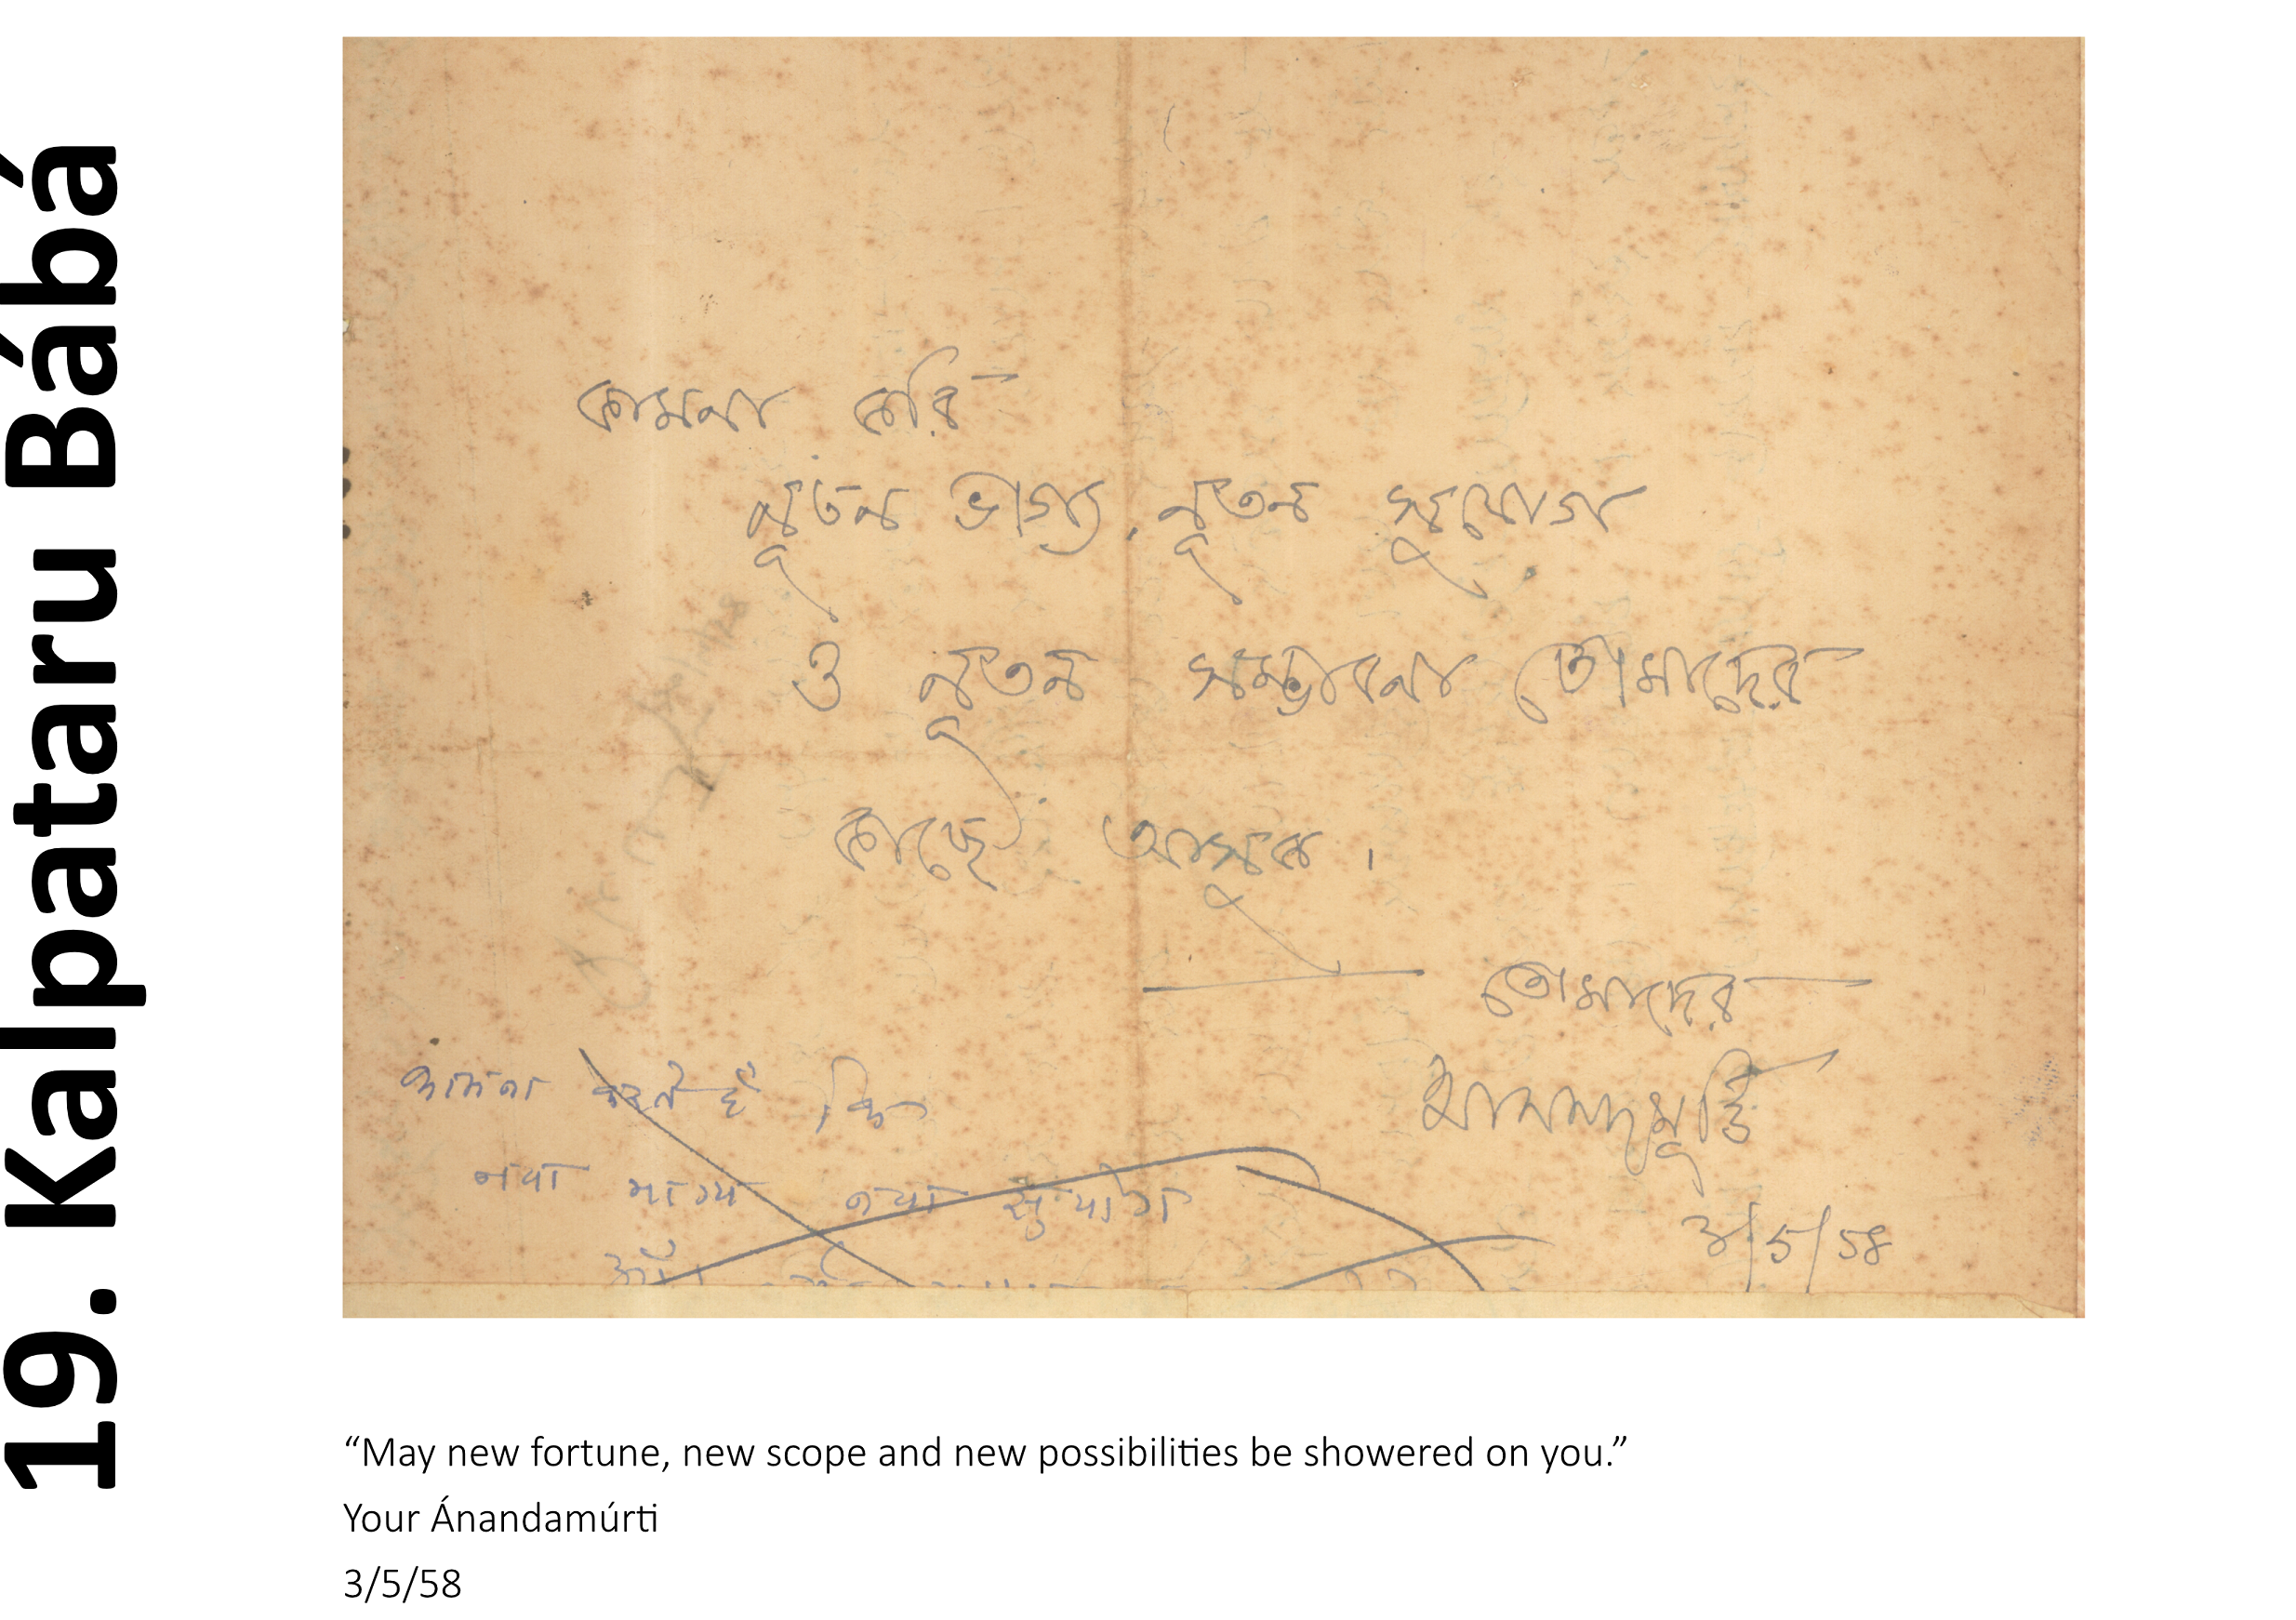 19. Kalpataru Bábá
কামনা করি
নূতন ভাগ্য, নূতন সুযোগ
ও নূতন সম্ভাবনা তোমাদের
কাছে আসুক।
তোমাদের
আনন্দমূর্ত্তি
3/5/58
कामना करते हैं कि
नया भाग्य नया सुयोग
“May new fortune, new scope and new possibilities be showered on you.”
Your Ánandamúrti
3/5/58